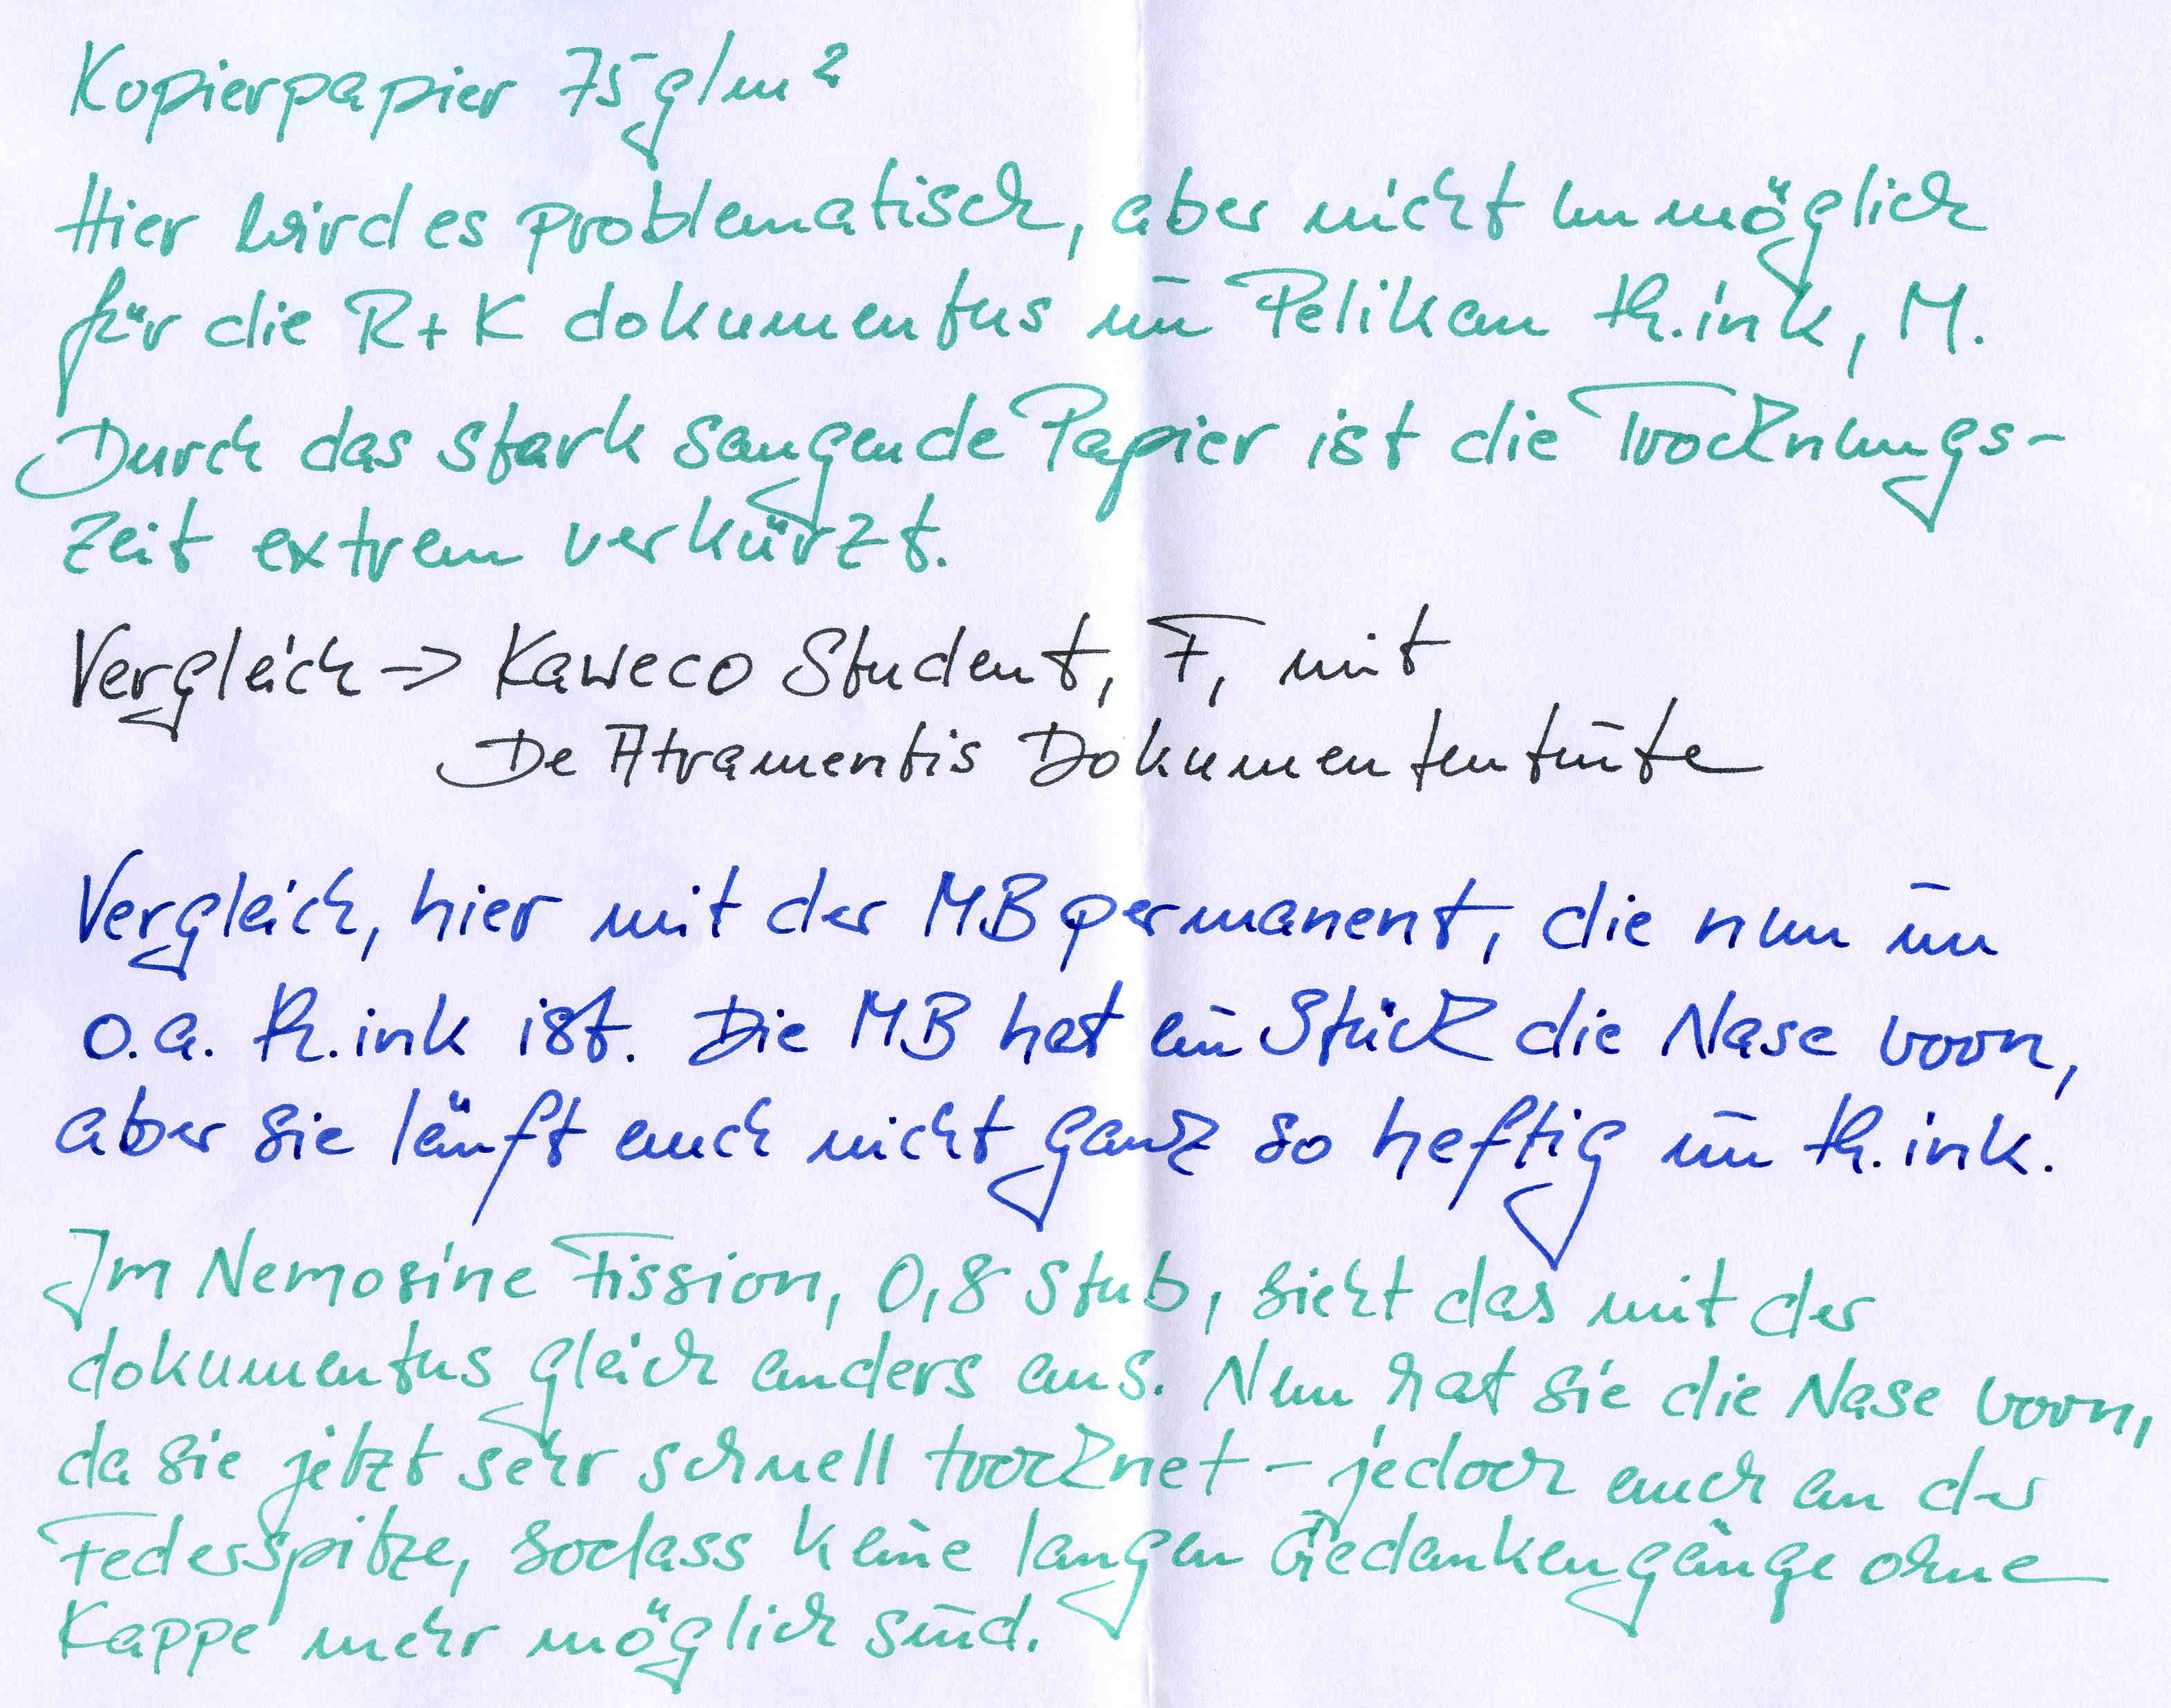 Kopierpapier 75 g/m²
Hier wird es problematisch, aber nicht unmöglich
für die R+K dokumentus im Pelikan th.ink, M.
Durch das stark saugende Papier ist die Trocknungs-
zeit extrem verkürzt.
Vergleich -> Kaweco Student, F, mit
De Atramentis Dokumententinte
Vergleich, hier mit der MB permanent, die nun im
o.a. th.ink ist. Die MB hat ein Stück die Nase vorn,
aber sie läuft auch nicht ganz so heftig im th.ink.
Im Nemosine Fission, 0,8 Stub, sieht das mit der
dokumentus gleich anders aus. Nun hat sie die Nase vorn,
da sie jetzt sehr schnell trocknet - jedoch auch an der
Federspitze, sodass keine langen Gedankengänge ohne
Kappe mehr möglich sind.